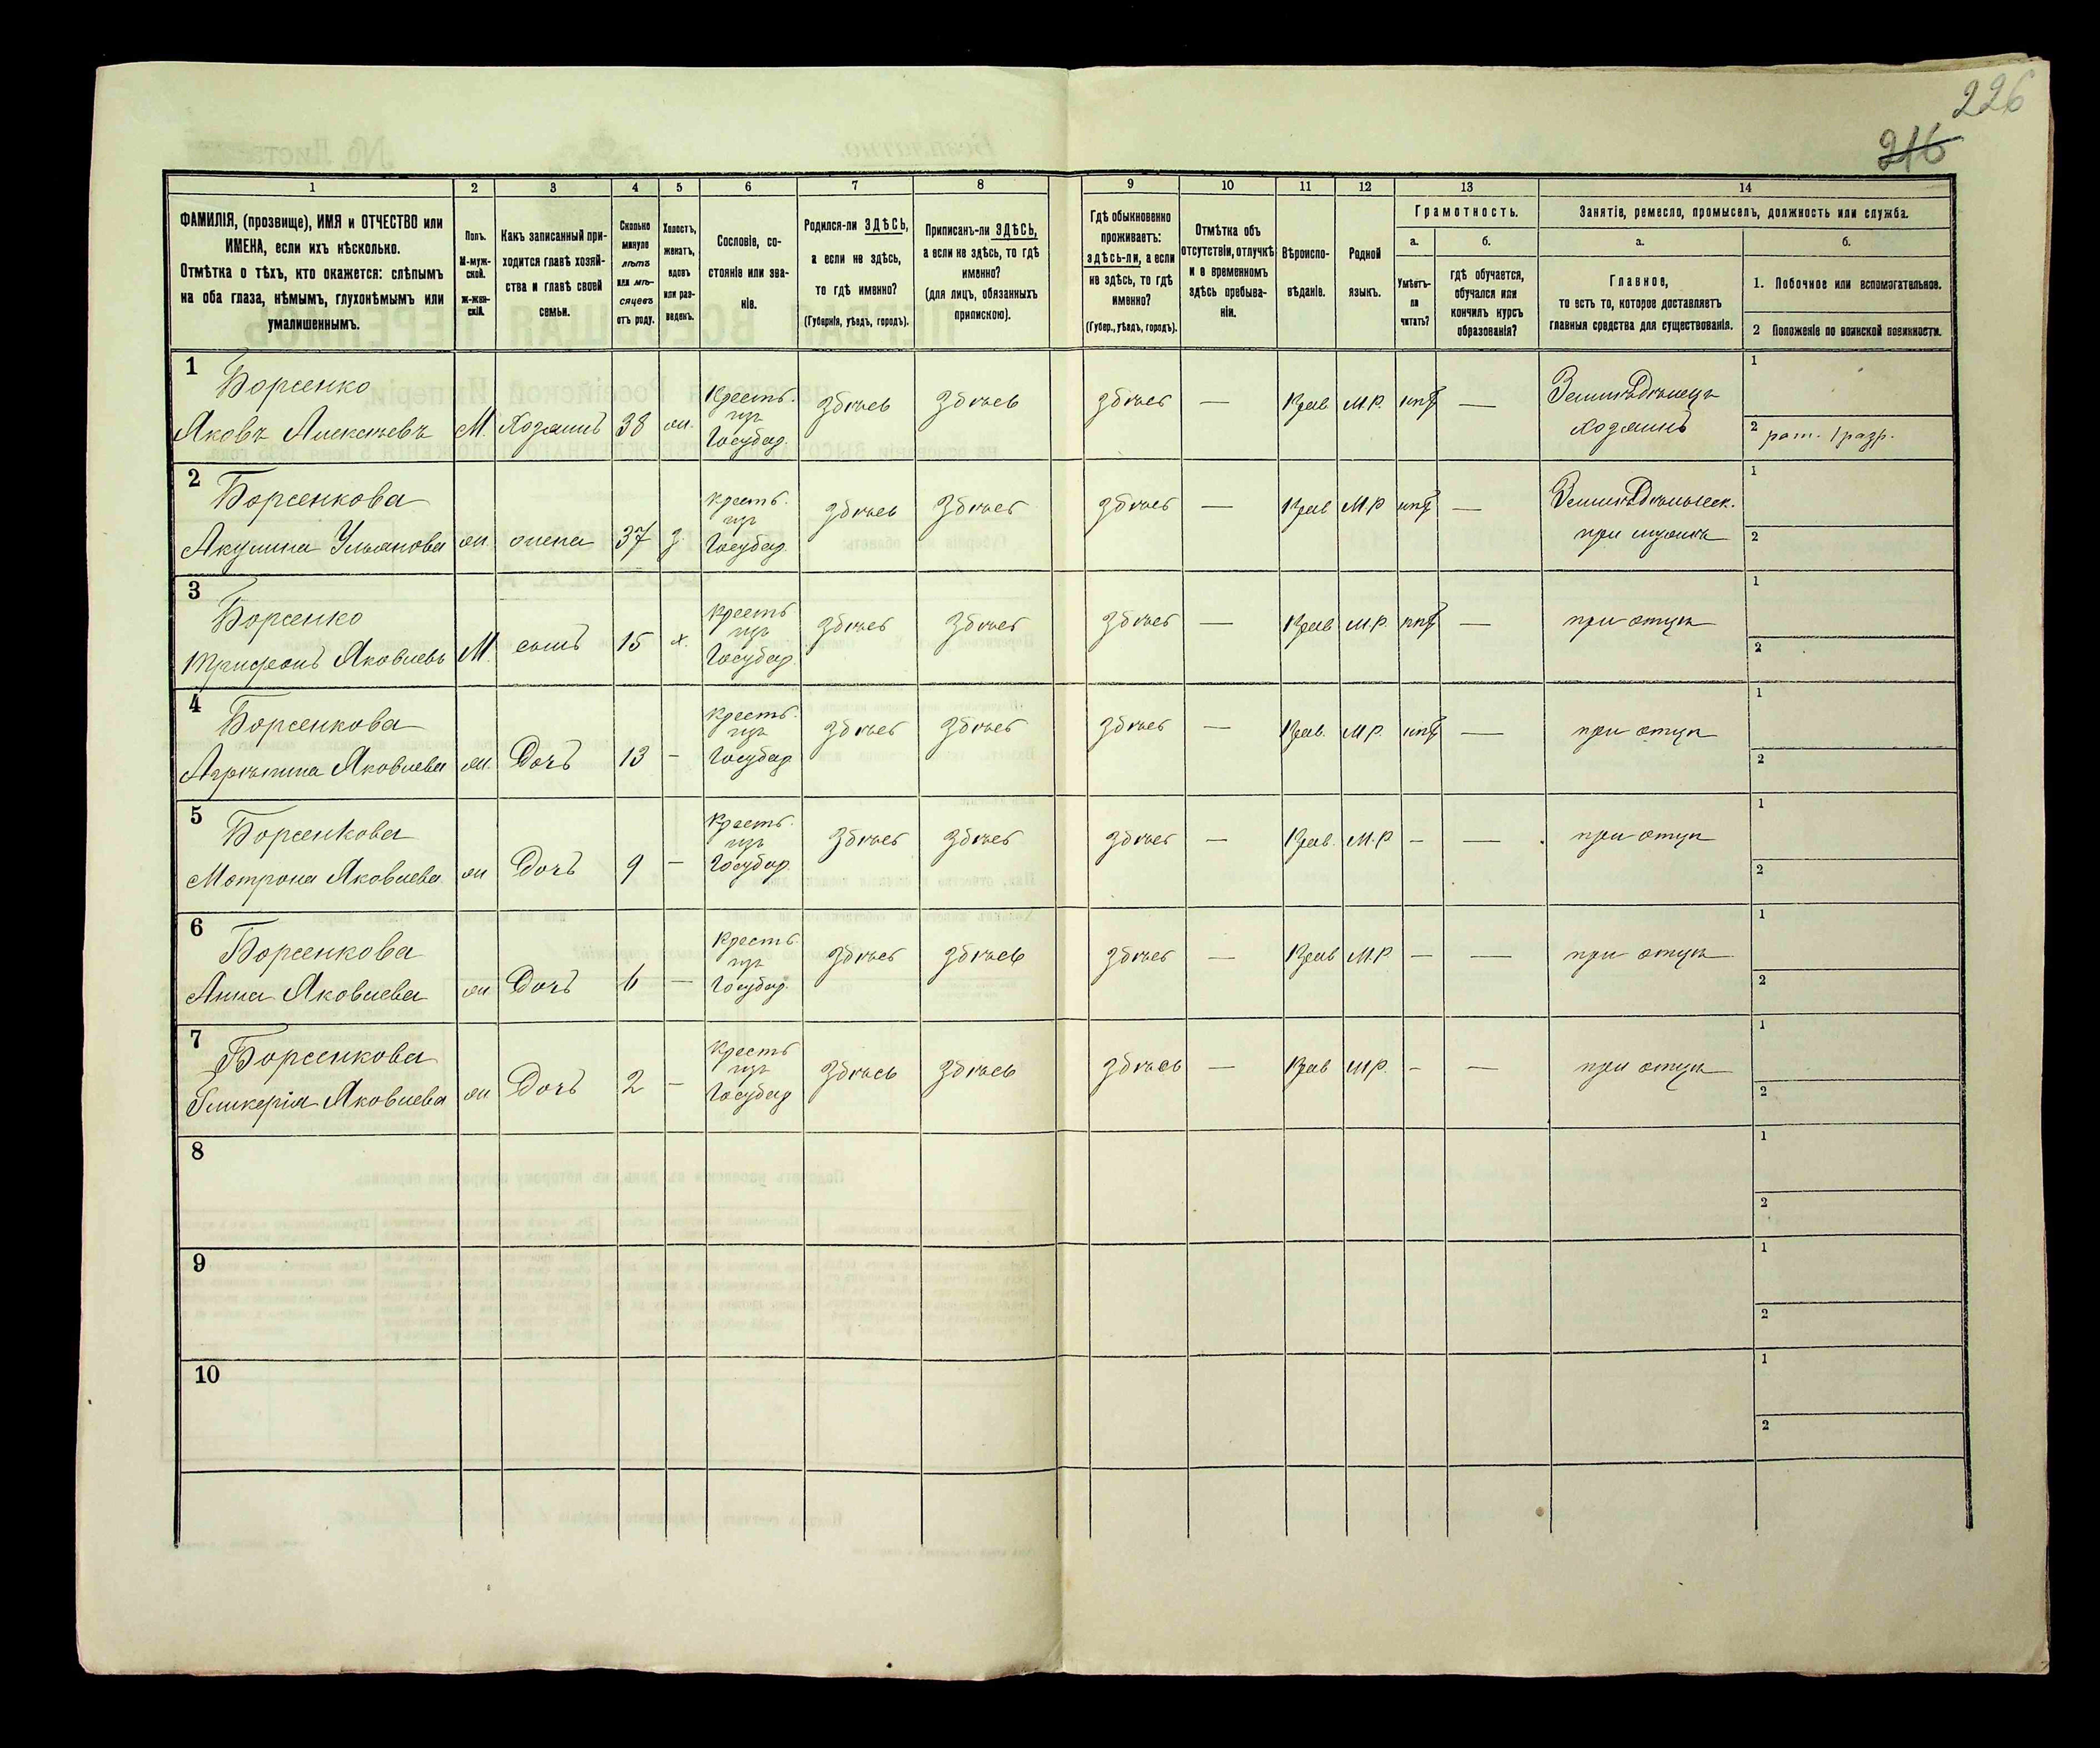 226
216
1
2
3
4
5
6
7
8
9
10
11
12
13
14
ФАМИЛІЯ, (прозвище), ИМЯ и ОТЧЕСТВО или
ИМЕНА, если ихъ нѣсколько.
Отмѣтка о тѣхъ, кто окажется: слѣпымъ
на оба глаза, нѣмымъ, глухонѣмымъ или
умалишеннымъ.
Полъ.
М-муж-
ской.
ж-жен-
скій.
Какъ записанный при-
ходится главѣ хозяй-
ства и главѣ своей
семьи.
Сколько
минуло
лѣтъ
или мѣ-
сяцевъ
отъ роду.
Холостъ,
женатъ,
вдовъ
или раз-
веденъ.
Сословіе, со-
стояніе или зва-
ніе.
Родился-ли ЗДѢСЬ,
а если не здѣсь,
то гдѣ именно?
(Губернія, уѣздъ, городъ).
Приписанъ-ли ЗДѢСЬ,
а если не здѣсь, то гдѣ
именно?
(для лицъ, обязанныхъ
припискою).
Гдѣ обыкновенно
проживаетъ:
здѣсь-ли, а если
не здѣсь, то гдѣ
именно?
(Губер., уѣздъ, городъ).
Отмѣтка объ
отсутствіи, отлучкѣ
и о временномъ
здѣсь пребыва-
ніи.
Вѣроиспо-
вѣданіе.
Родной
языкъ.
Грамотность.
а.
б.
Умѣетъ-
ли
читать?
гдѣ обучается,
обучался или
кончилъ курсъ
образованія?
Занятіе, ремесло, промыселъ, должность или служба.
а.
б.
Главное,
то есть то, которое доставляетъ
главныя средства для существованія.
1. Побочное или вспомогательное.
2 Положеніе по воинской повинности.
1
Борсенко
Яковъ Алексѣевъ М. Хозяинъ 38 ж. Кресть. изъ Государ. здѣсь здѣсь здѣсь — Прав М.Р. нѣт — Земледѣлецъ хозяинъ
1
2 рат. 1 разр.
2
Борсенкова
Акулина Ульянова ж. жена 37 з. Кресть. изъ Государ. здѣсь здѣсь здѣсь — Прав М.Р нѣт — Земледѣльческ. при мужѣ
1
2
3
Борсенко
Трифонъ Яковлевъ М. сынъ 15 х. Кресть изъ Государ. здѣсь здѣсь здѣсь — Прав М.Р. нѣт — при отцѣ
1
2
4
Борсенкова
Агрипина Яковлева ж. Дочь 13 — Кресть. изъ Государ здѣсь здѣсь здѣсь — Прав. М.Р. нѣт — при отцѣ
1
2
5
Борсенкова
Мотрона Яковлева ж Дочь 9 — Кресть. изъ Государ. здѣсь здѣсь здѣсь — Прав. М.Р — — при отцѣ
1
2
6
Борсенкова
Анна Яковлева ж Дочь 6 — Кресть. изъ Государ. здѣсь здѣсь здѣсь — Прав М.Р — — при отцѣ
1
2
7
Борсенкова
Гликерія Яковлева ж Дочь 2 — Кресть изъ Государ здѣсь здѣсь здѣсь — Прав М.Р. — — при отцѣ
1
2
8
1
2
9
1
2
10
1
2